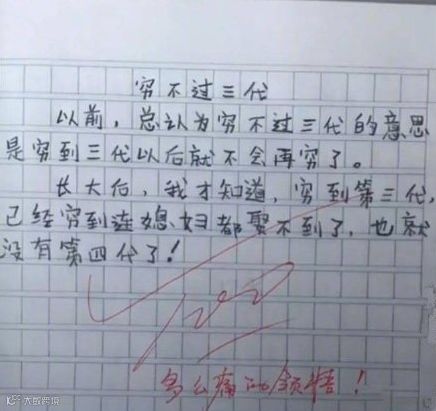 穷不过三代
以前，总认为穷不过三代的意思
是穷到三代以后就不会再穷了。
长大后，我才知道，穷到第三代，
已经穷到连媳妇都娶不到了，也就
没有第四代了！
100
多么痛的领悟！
大数跨境